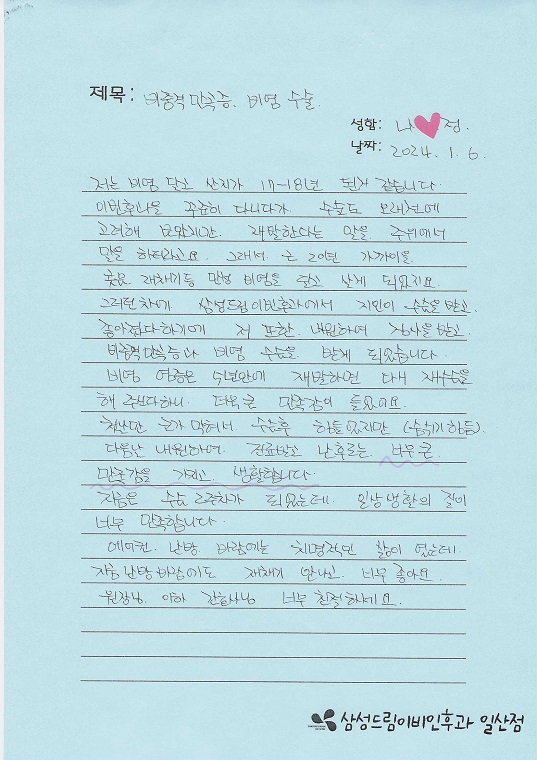 제목: 비중격만곡증. 비염 수술.
성함: 나♥정.
날짜: 2024. 1. 6.
저는 비염 달고 산지가 17-18년 된거 같습니다.
이빈후과를 꾸준히 다니다가 수술도 오래전에
고려해 보았지만. 재발한다는 말을 주위에서
말을 하더라고요. 그래서 근 20년 가까이를
콧물 재채기등 만성 비염을 달고 살게 되었지요.
그러던차에 삼성드림이빈후과에서 지인이 수술을 받고.
좋아졌다하기에 저 또한 내원하여 검사을 받고.
비중격만곡증과 비염 수술을 받게 되었습니다.
비염 염증은 5년안에 재발하면 다시 재수술을
해 주신다하니 더욱 큰 만족감이 들었어요.
첫날만 코가 막혀서 수술후 힘들었지만 (-숨쉬기 힘듬).
다음날 내원하여. 진료받고 난후로는. 너무 큰
만족감을 가지고 생활합니다
지금은 수술 2주차가 되었는데. 일상생활의 질이
너무 만족합니다.
에어컨. 난방 바람에는 치명적인 찰이 었는데.
지금 난방바람에도 재채기 안나고. 너무 좋아요
원장님. 이하 간호사님 너무 친절하세요.
삼성드림이비인후과 일산점